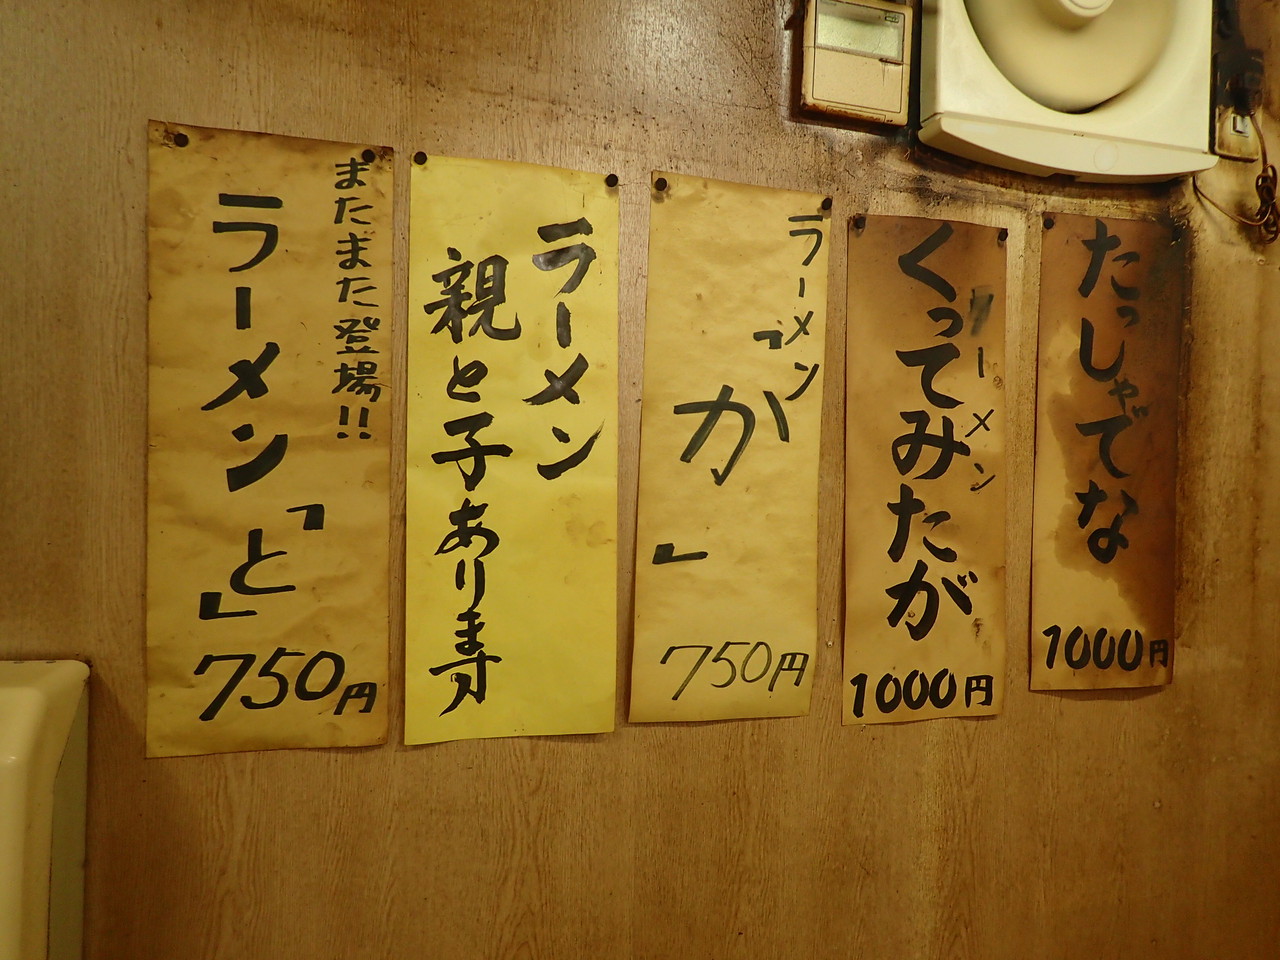 たっしゃでな
1000円
ラーメン
くってみたが
1000円
ラーメン
「か」
750円
ラーメン
親と子あります
またまた登場!!
ラーメン「と」
750円